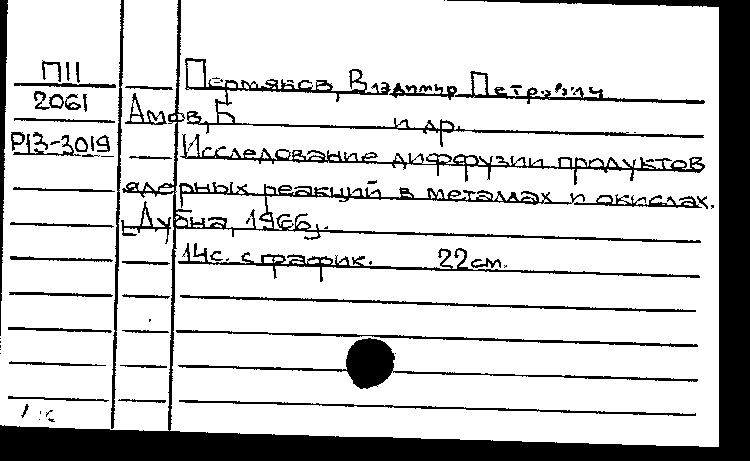 П11 Пермяков, Владимир Петрович
2061 Амов, Б и др.
Р13-3019 Исследование диффузии продуктов
ядерных реакций в металлах и окислах.
[Дубна, 1966].
14с. с график. 22см.